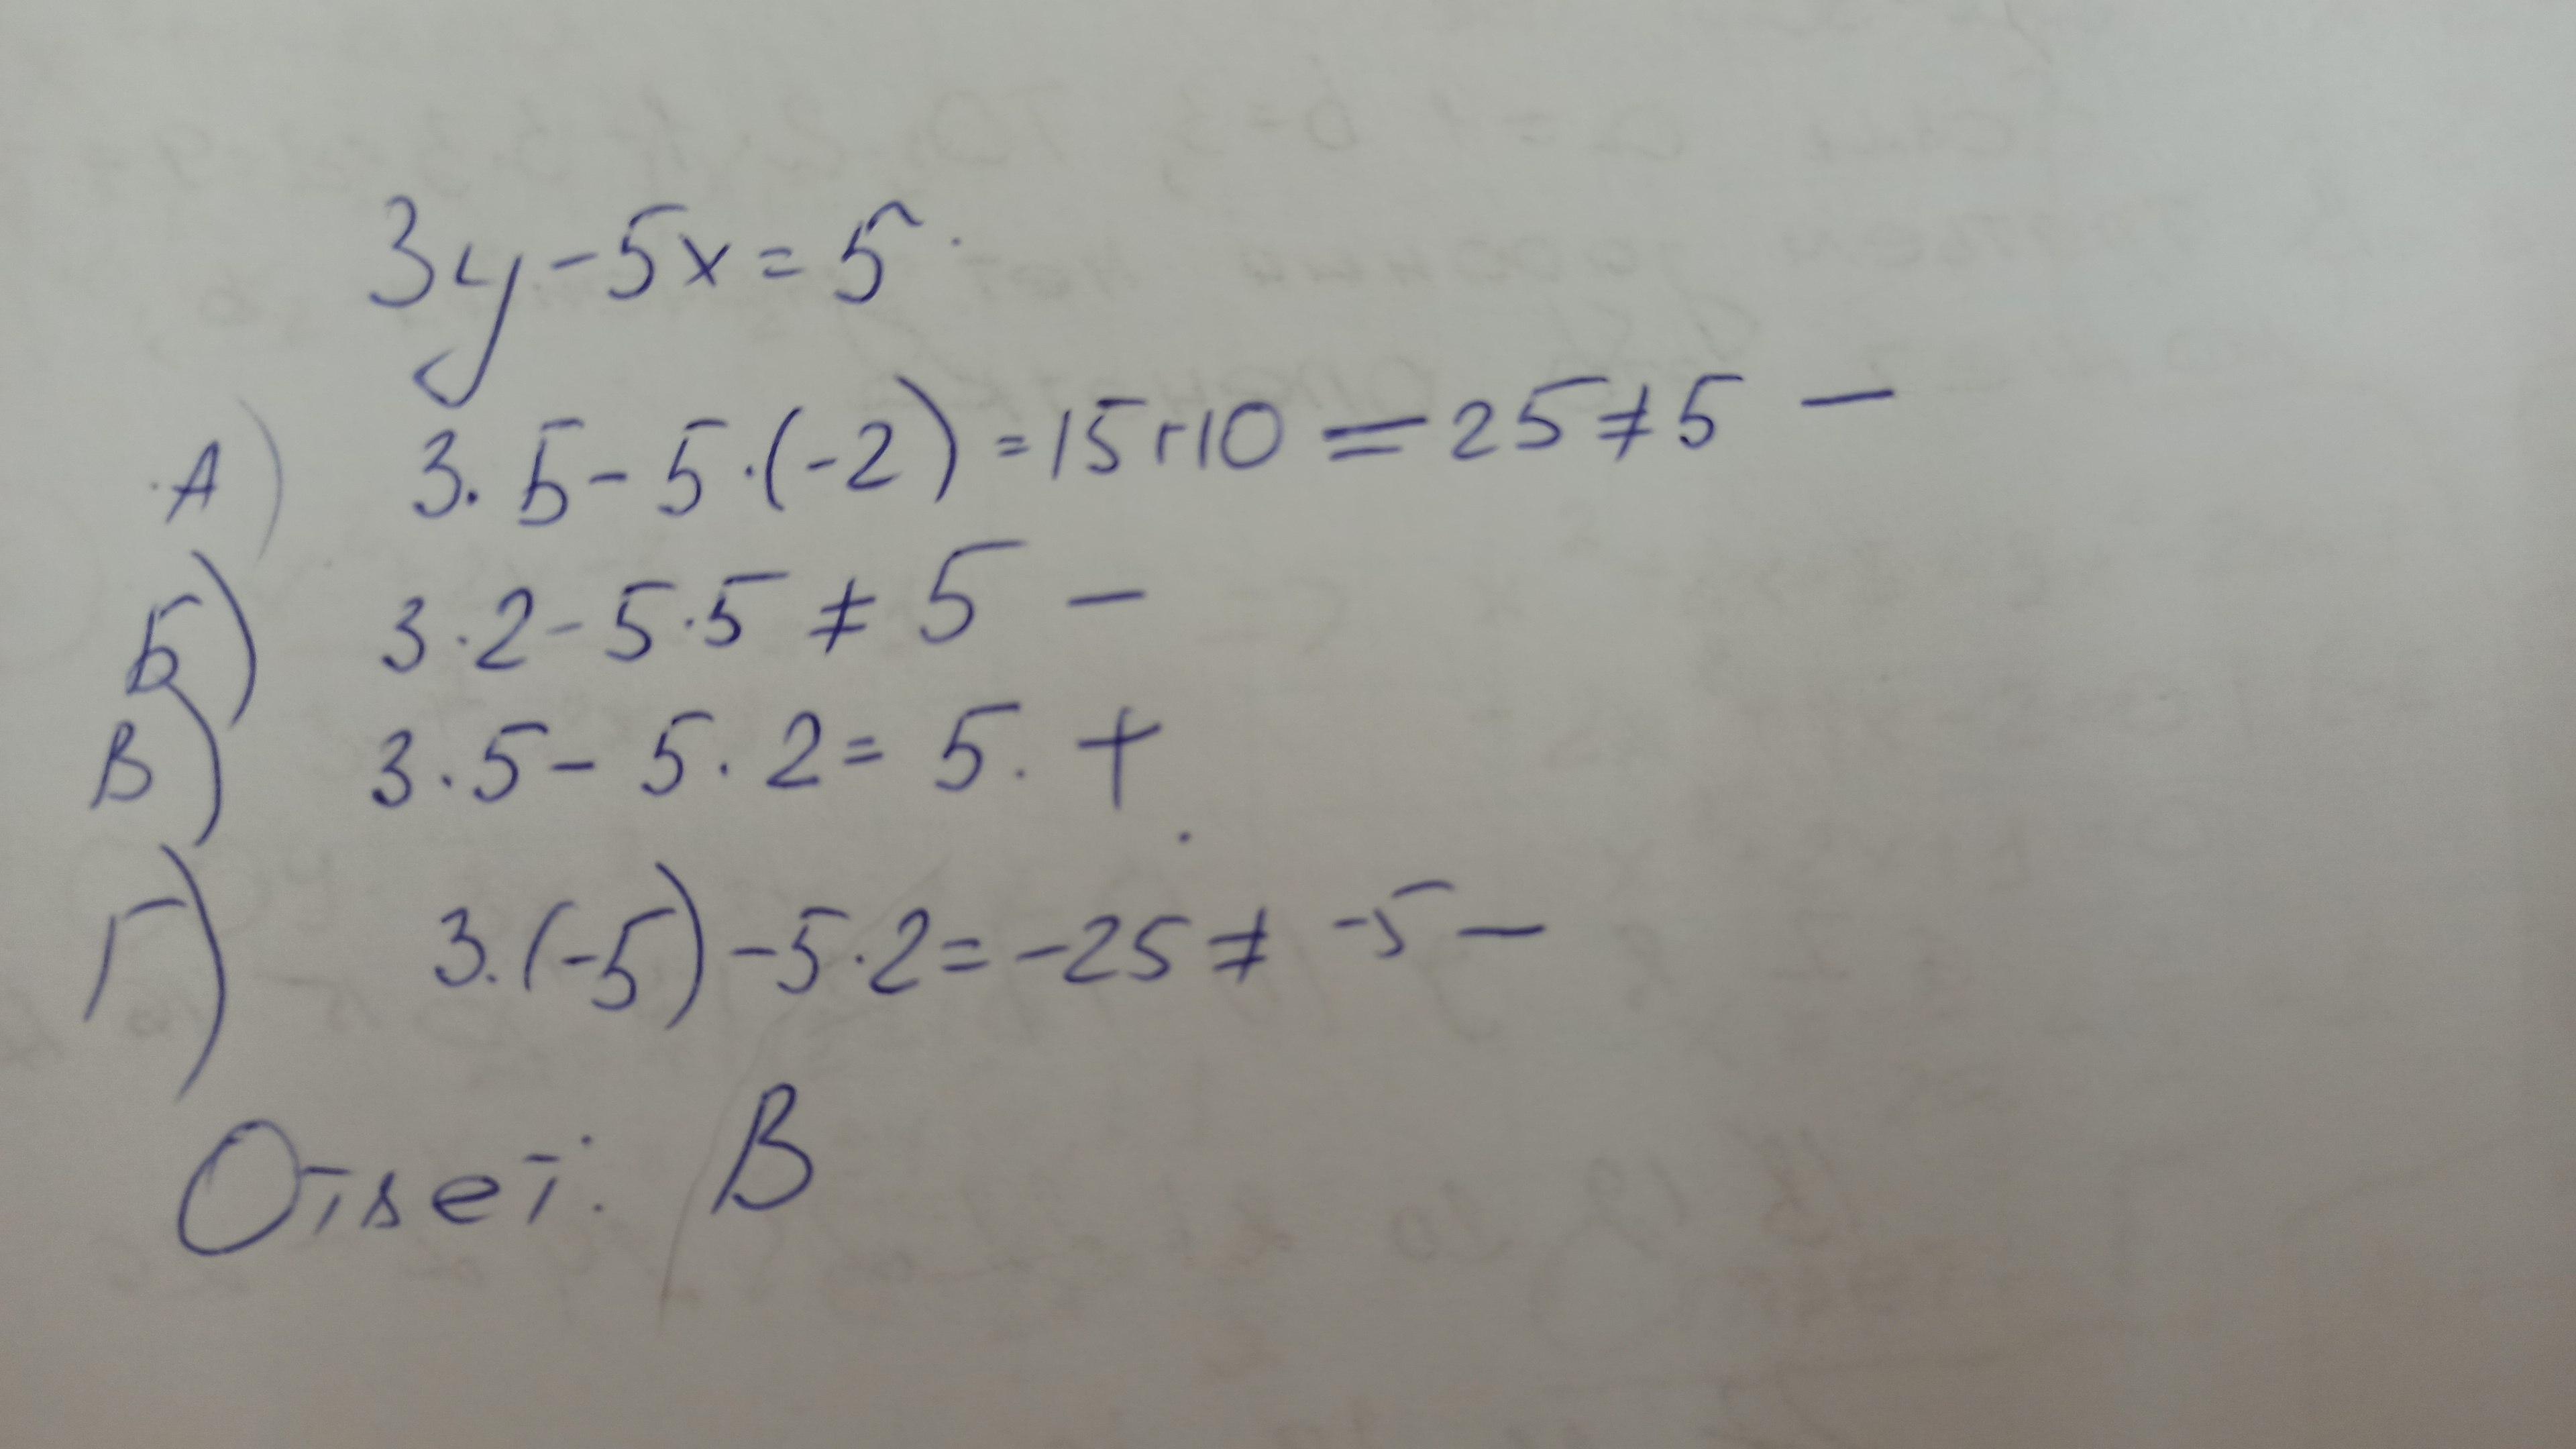 3y-5x=5
А) 3·5-5·(-2)=15+10=25≠5 -
Б) 3·2-5·5≠5 -
В) 3·5-5·2=5. +
Г) 3·(-5)-5·2=-25≠-5 -
Ответ: В